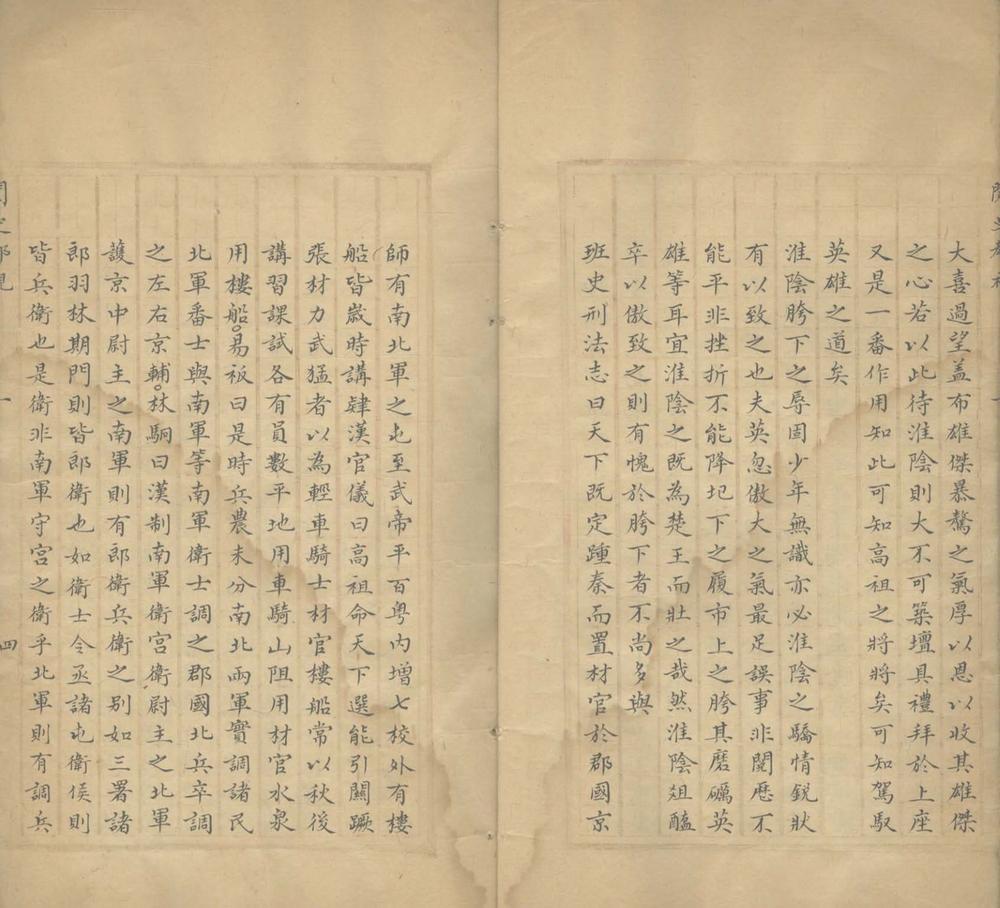 大喜過望盖布雄傑暴驁之氣厚以恩以收其雄傑
之心若以此待淮陰則大不可築壇具禮拜於上座
又是一番作用知此可知高祖之將將矣可知駕馭
英雄之道矣
淮陰胯下之辱固少年無識亦必淮陰之驕情鋭狀
有以致之也夫英忽傲大之氣最足誤事非閱歷不
能平非挫折不能降圯下之履市上之胯其磨礪英
雄等耳宜淮陰之既為楚王而壯之哉然淮陰爼醢
卒以傲致之則有愧於胯下者不尚多與
班史刑法志曰天下既定踵秦而置材官於郡國京
師有南北軍之屯至武帝平百粤内增七校外有樓
船皆歲時講肄漢官儀曰高祖命天下選能引關蹶
張材力武猛者以為輕車騎士材官樓船常以秋後
講習課試各有員數平地用車騎山阻用材官水泉
用樓船。易祓曰是時兵農未分南北兩軍實調諸民
北軍番士與南軍等南軍衛士調之郡國北兵卒調
之左右京輔。林駉曰漢制南軍衛宮衛尉主之北軍
護京中尉主之南軍則有郎衛兵衛之别如三署諸
郎羽林期門則皆郎衛也如衛士令丞諸屯衛侯則
皆兵衛也是衛非南軍守宮之衛乎北軍則有調兵
四